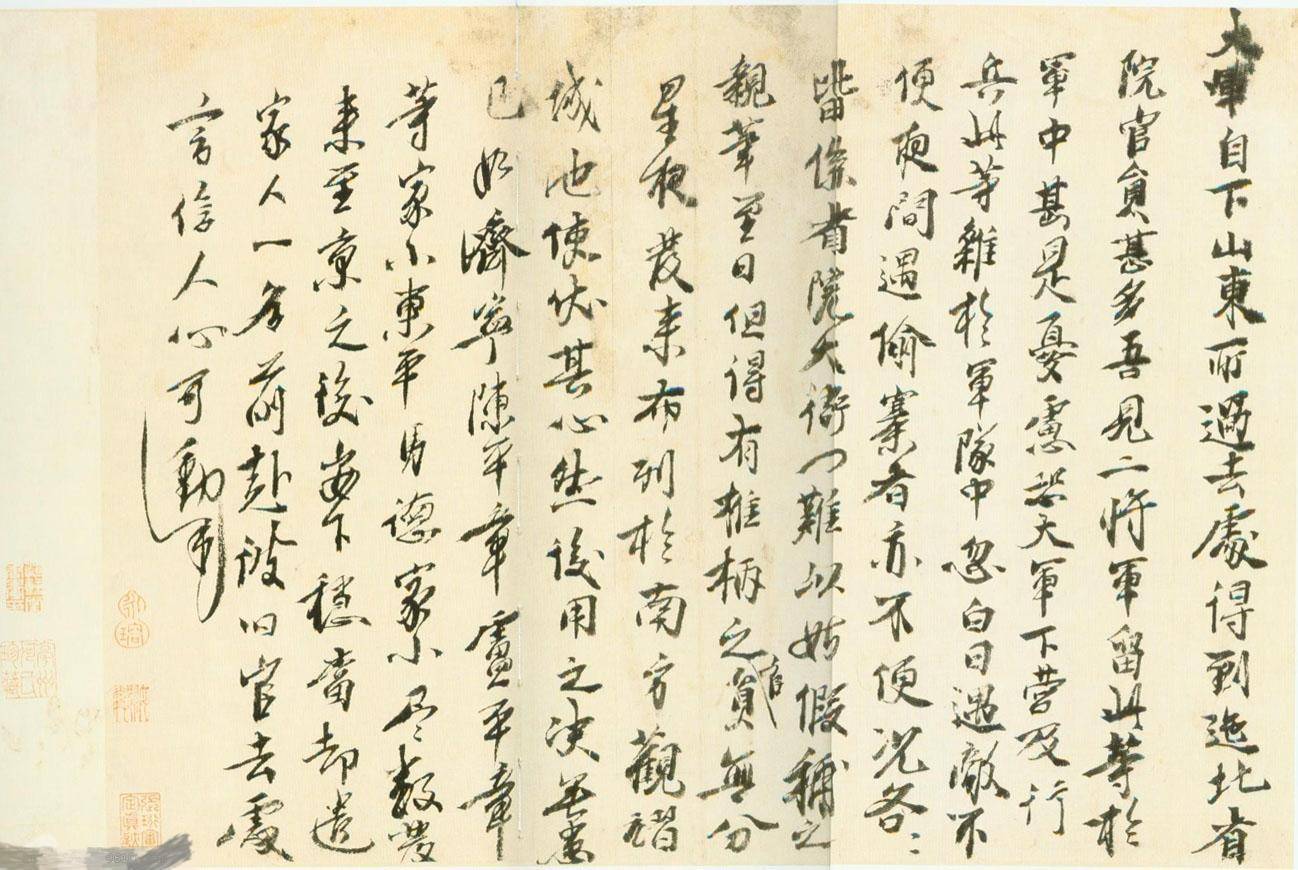 大軍自下山東所過去處得到迤北省
院官員甚多吾見二將軍留此等於
軍中甚是憂慮恐大軍下營及行
兵此等雜於軍隊中忽白日遇敵不
便夜間遇偷寨者亦不便况各〻
皆係省院大衙門難以姑假補之
親筆至日但得有椎柄之官員無分
星夜發来布列於南方觀
城池使伏其心然後用之决無患
已如濟寧陳平章盧平章
等家小東平馬德家小尽数發
来至京之後安下穩當却遣
家人一名前赴彼旧官去處
言信人心可動